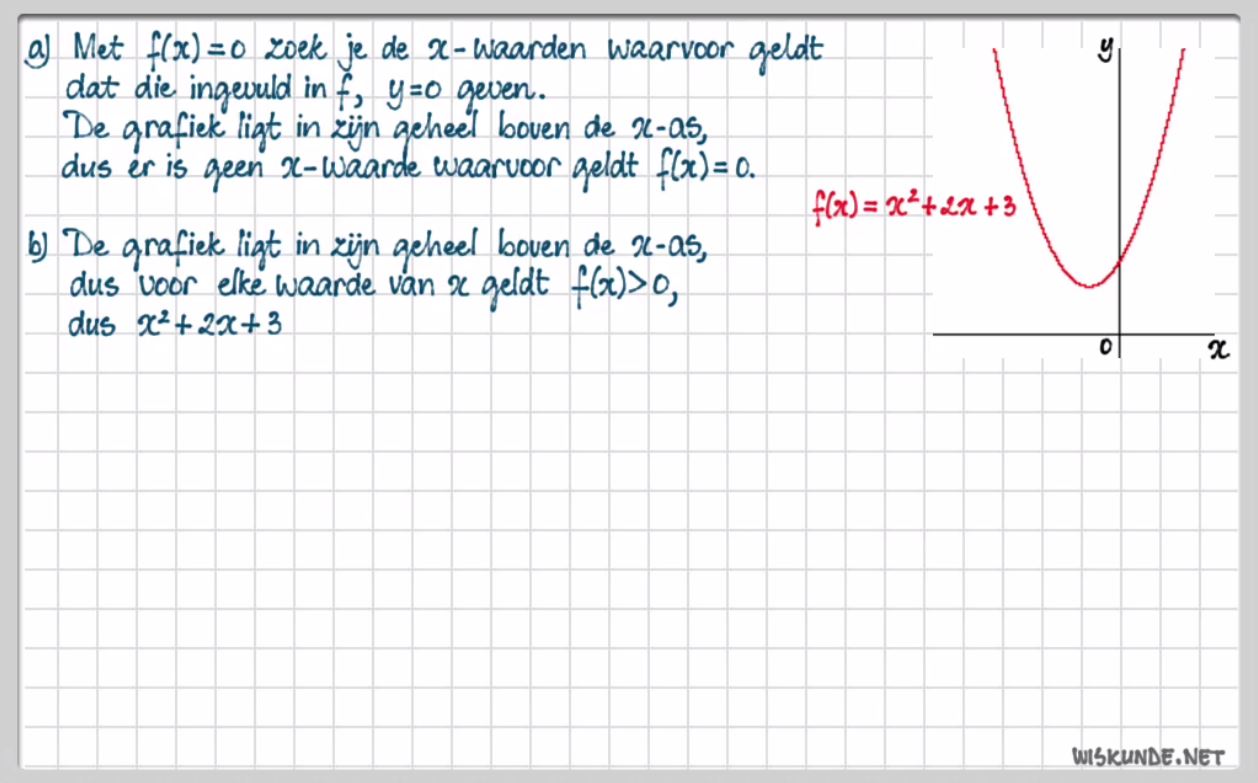 a) Met f(x)=0 zoek je de x-waarden waarvoor geldt
dat die ingevuld in f, y=0 geven.
De grafiek ligt in zijn geheel boven de x-as,
dus er is geen x-waarde waarvoor geldt f(x)=0.
b) De grafiek ligt in zijn geheel boven de x-as,
dus voor elke waarde van x geldt f(x)>0,
dus x²+2x+3
y
f(x) = x²+2x+3
0
x
WISKUNDE.NET